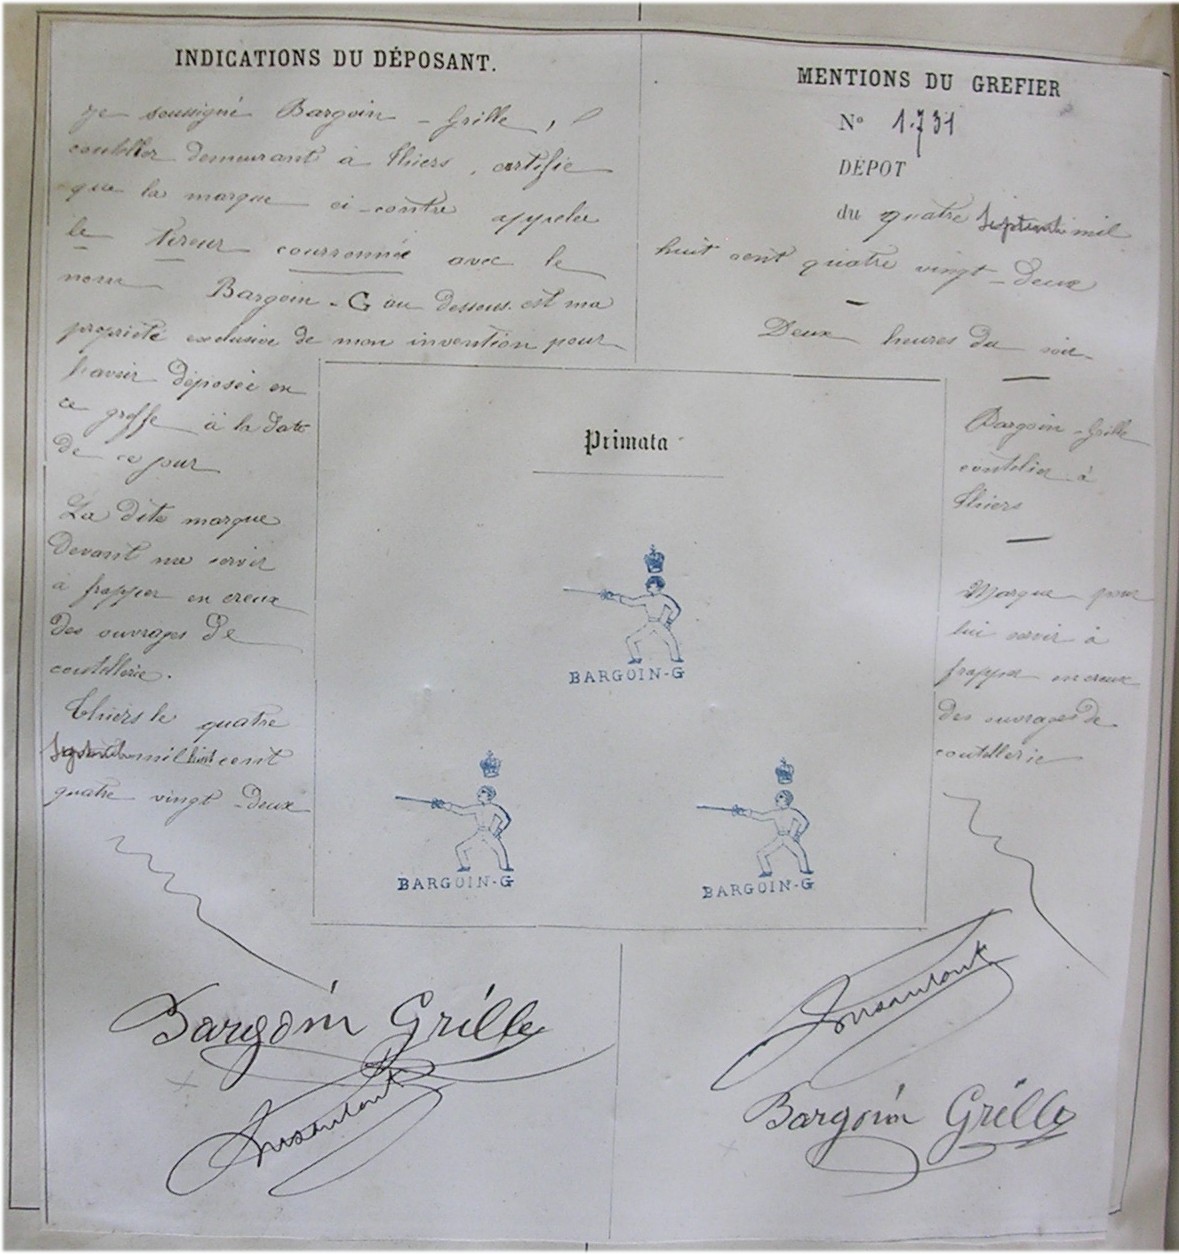 INDICATIONS DU DÉPOSANT.
Je soussigné Bargoin - Grille,
coutelier demeurant à Thiers, certifie
que la marque ci-contre appelée
le tireur courronné avec le
nom Bargoin - G au dessous est ma
propriété exclusive de mon invention pour
l'avoir déposée en
ce greffe à la date
de ce jour
La dite marque
devant me servir
à frapper en creux
des ouvrages de
coutellerie.
Thiers le quatre
Septembre mil huit cent
quatre vingt - deux
MENTIONS DU GREFIER
N° 1.731
DÉPOT
du quatre Septembre mil
huit cent quatre vingt - deux
Deux heures du soir
Bargoin - Grille
coutelier à
Thiers
Marque pour
lui servir à
frapper en creux
des ouvrages de
coutellerie
Primata
BARGOIN-G
BARGOIN-G
BARGOIN-G
Bargoin Grille
Bargoin Grille